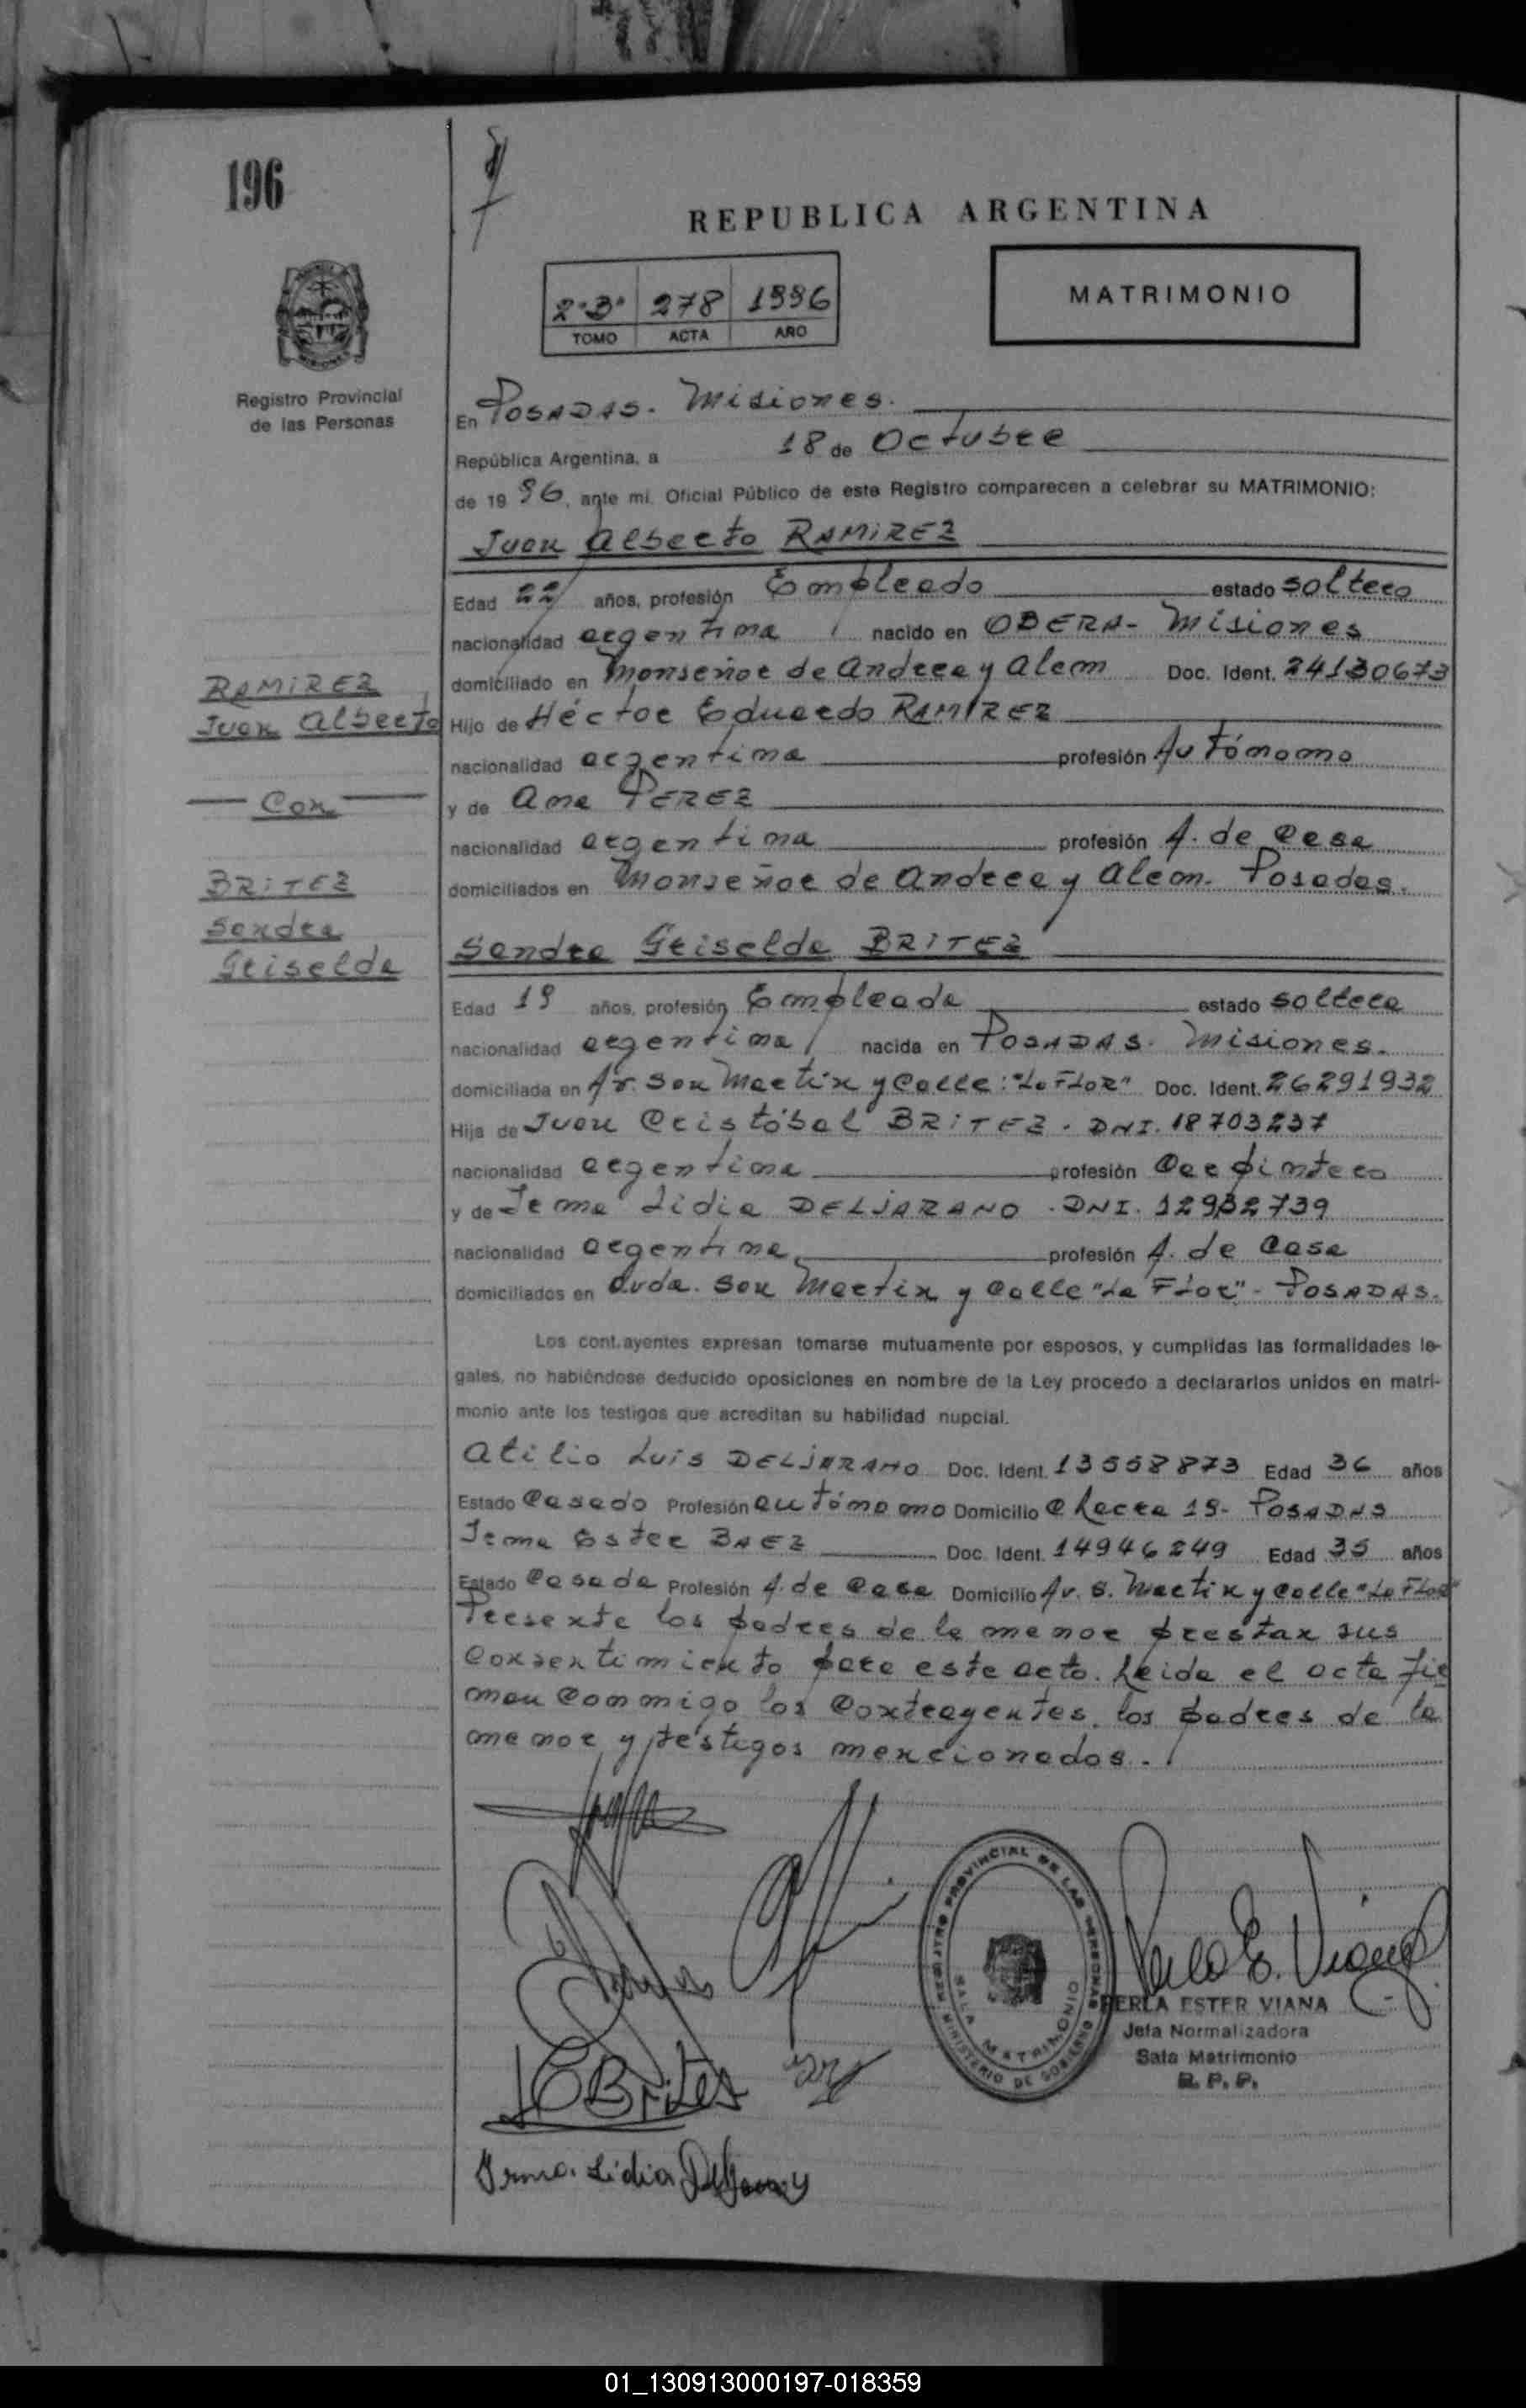 196
REPUBLICA ARGENTINA
2º3º 278 1996
TOMO ACTA AÑO
MATRIMONIO
Registro Provincial
de las Personas
En POSADAS. Misiones.
República Argentina, a 18 de Octubre
de 19 96, ante mi, Oficial Público de este Registro comparecen a celebrar su MATRIMONIO:
Juan Alberto RAMIREZ
Edad 22 años, profesión Empleado estado soltero
nacionalidad argentina nacido en OBERA- Misiones
domiciliado en Monseñor de Andrea y Alem Doc. Ident. 24130673
RAMIREZ
Juan Alberto
Hijo de Héctor Eduardo RAMIREZ
nacionalidad argentina profesión Autónomo
Con
y de Ana PEREZ
nacionalidad argentina profesión A. de Casa
domiciliados en Monseñor de Andrea y Alem. Posadas.
BRITEZ
Sandra
Griselda
Sandra Griselda BRITEZ
Edad 19 años, profesión Empleada estado soltera
nacionalidad argentina nacida en POSADAS. Misiones.
domiciliada en Av. San Martin y Calle: "La FLOR" Doc. Ident. 26291932
Hija de Juan Cristóbal BRITEZ. DNI. 18703237
nacionalidad argentina profesión Carpintero
y de Irma Lidia DELJARANO. DNI. 12932739
nacionalidad argentina profesión A. de Casa
domiciliados en Avda. San Martin y Calle "La Flor"- POSADAS.
Los cont.ayentes expresan tomarse mutuamente por esposos, y cumplidas las formalidades le-
gales, no habiéndose deducido oposiciones en nombre de la Ley procedo a declararlos unidos en matri-
monio ante los testigos que acreditan su habilidad nupcial.
Atilio Luis DELJARANO Doc. Ident. 13558873 Edad 36 años
Estado Casado Profesión autónomo Domicilio Chacra 19- POSADAS
Irma Ester BAEZ Doc. Ident. 14946249 Edad 35 años
Estado Casada Profesión A. de Casa Domicilio Av. S. Martin y Calle "La Flor"
Presente los padres de la menor prestan sus
Consentimiento para este acto. Leida el acta fir
man Conmigo los Contrayentes, los padres de la
menor y testigos mencionados.
REGISTRO PROVINCIAL DE LAS PERSONAS
SALA MATRIMONIO
MINISTERIO DE GOBIERNO
Perla E. Viana
PERLA ESTER VIANA
Jefa Normalizadora
Sala Matrimonio
R. P. P.
JCBritez
Irma Lidia
01_130913000197-018359